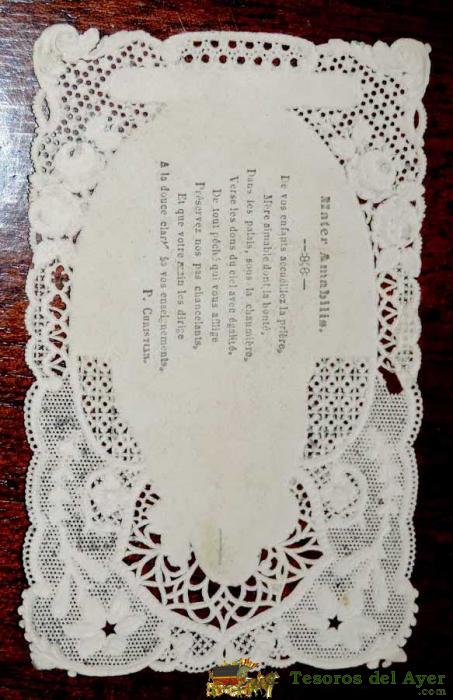 Mater Amabilis.
De vos enfants accueillez la prière,
Mère aimable dont la bonté,
Dans les palais, sous la chaumière,
Verse les dons du ciel avec égalité.
De tout péché qui vous afflige
Préservez nos pas chancelants,
Et que votre main les dirige
A la douce clarté de vos enseignements.
P. CHRISTIAN.
Tesoros del Ayer
.com